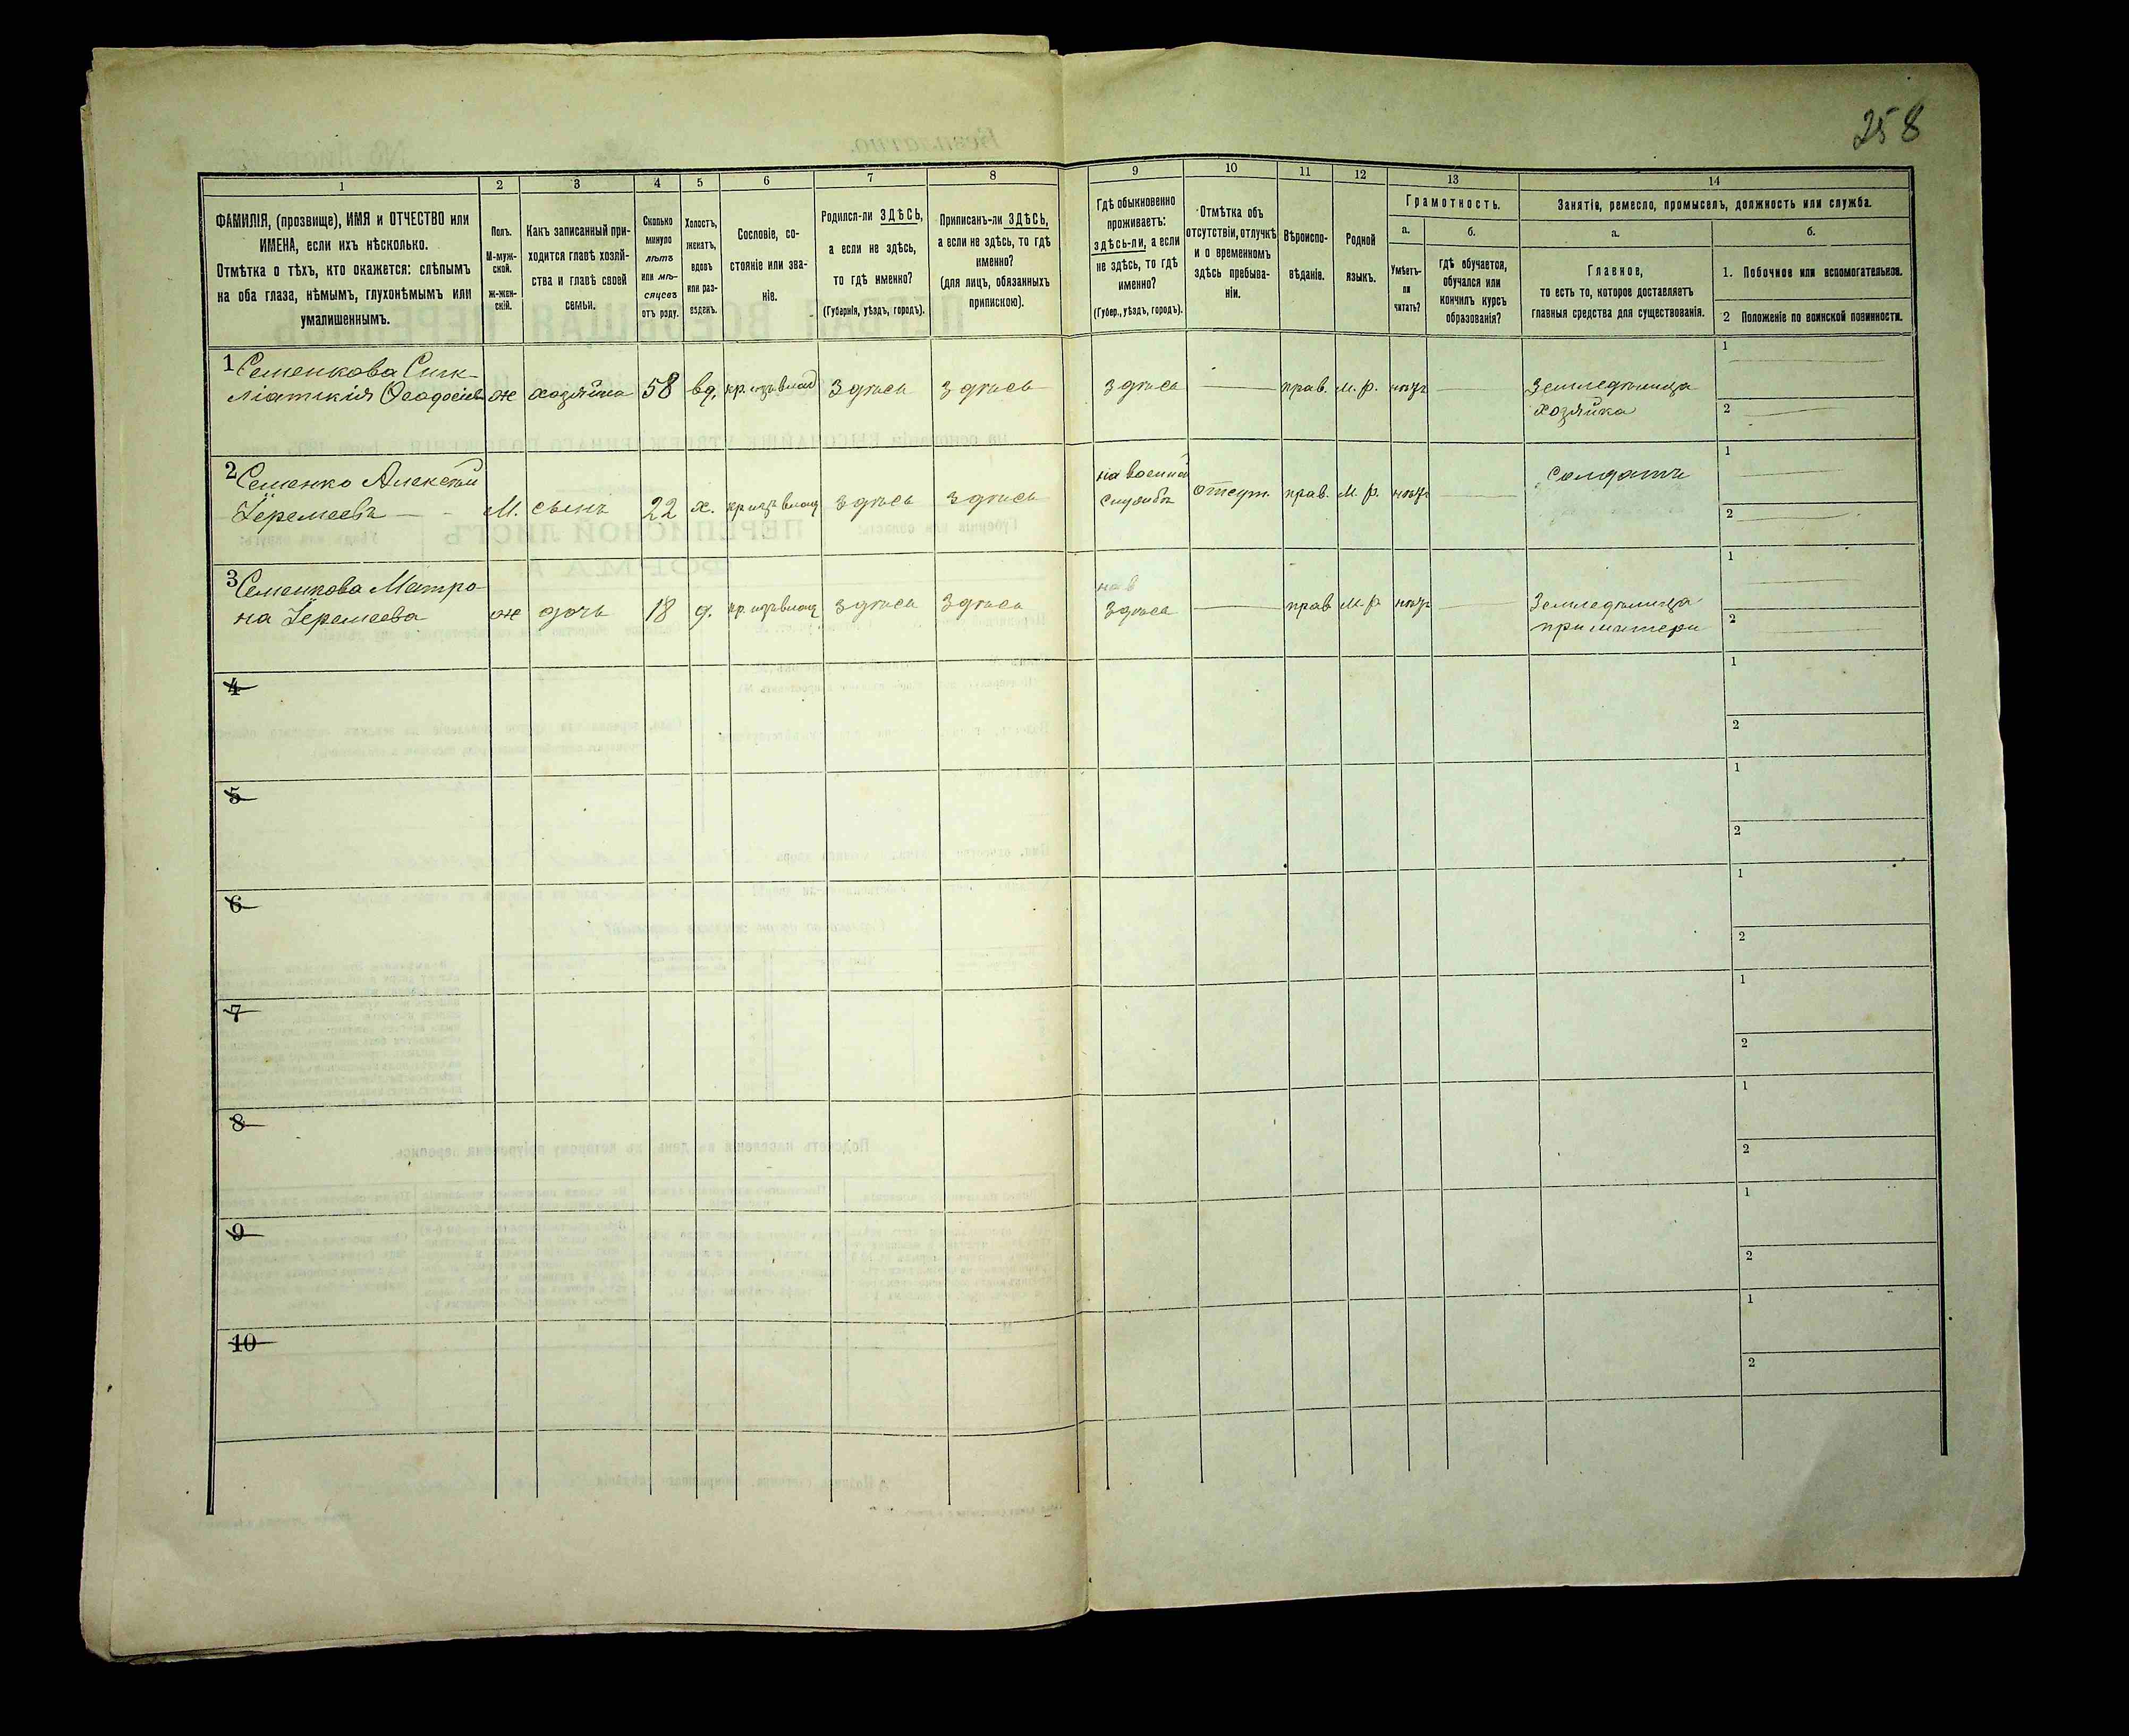 258
1
2
3
4
5
6
7
8
9
10
11
12
13
14
ФАМИЛІЯ, (прозвище), ИМЯ и ОТЧЕСТВО или
ИМЕНА, если ихъ нѣсколько.
Отмѣтка о тѣхъ, кто окажется: слѣпымъ
на оба глаза, нѣмымъ, глухонѣмымъ или
умалишеннымъ.
Полъ.
М-муж-
ской.
Ж-жен-
скій.
Какъ записанный при-
ходится главѣ хозяй-
ства и главѣ своей
семьи.
Сколько
минуло
лѣтъ
или мѣ-
сяцевъ
отъ роду.
Холостъ,
женатъ,
вдовъ
или раз-
веденъ.
Сословіе, со-
стояніе или зва-
ніе.
Родился-ли ЗДѢСЬ,
а если не здѣсь,
то гдѣ именно?
(Губернія, уѣздъ, городъ).
Приписанъ-ли ЗДѢСЬ,
а если не здѣсь, то гдѣ
именно?
(для лицъ, обязанныхъ
припискою).
Гдѣ обыкновенно
проживаетъ:
здѣсь-ли, а если
не здѣсь, то гдѣ
именно?
(Губер., уѣздъ, городъ).
Отмѣтка объ
отсутствіи, отлучкѣ
и о временномъ
здѣсь пребыва-
ніи.
Вѣроиспо-
вѣданіе.
Родной
языкъ.
Грамотность.
а.
Умѣетъ-
ли
читать?
б.
гдѣ обучается,
обучался или
кончилъ курсъ
образованія?
Занятіе, ремесло, промыселъ, должность или служба.
а.
Главное,
то есть то, которое доставляетъ
главныя средства для существованія.
б.
1. Побочное или вспомогательное.
2 Положеніе по воинской повинности.
1 Семенкова Синк-
литикія Ѳеодосіев ж хозяйка 58 вд. кр. изъ влад здѣсь здѣсь здѣсь — прав. м. р. нѣтъ — Земледѣлица
хозяйка
1
2
2 Семенко Алексѣй
Іеремеевъ — М. сынъ 22 х. кр изъ влад здѣсь здѣсь
на военной
службѣ отсут. прав. м. р. нѣтъ — солдатъ
1
2
3 Семенкова Матро-
на Іеремеева ж дочь 18 д. кр. изъ влад здѣсь здѣсь
на в
здѣсь — прав м. р нѣтъ — Земледѣлица
при матери
1
2
4
1
2
5
1
2
6
1
2
7
1
2
8
1
2
9
1
2
10
1
2